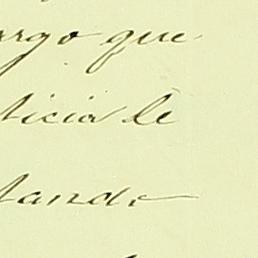 argo que
ticia lê
tando